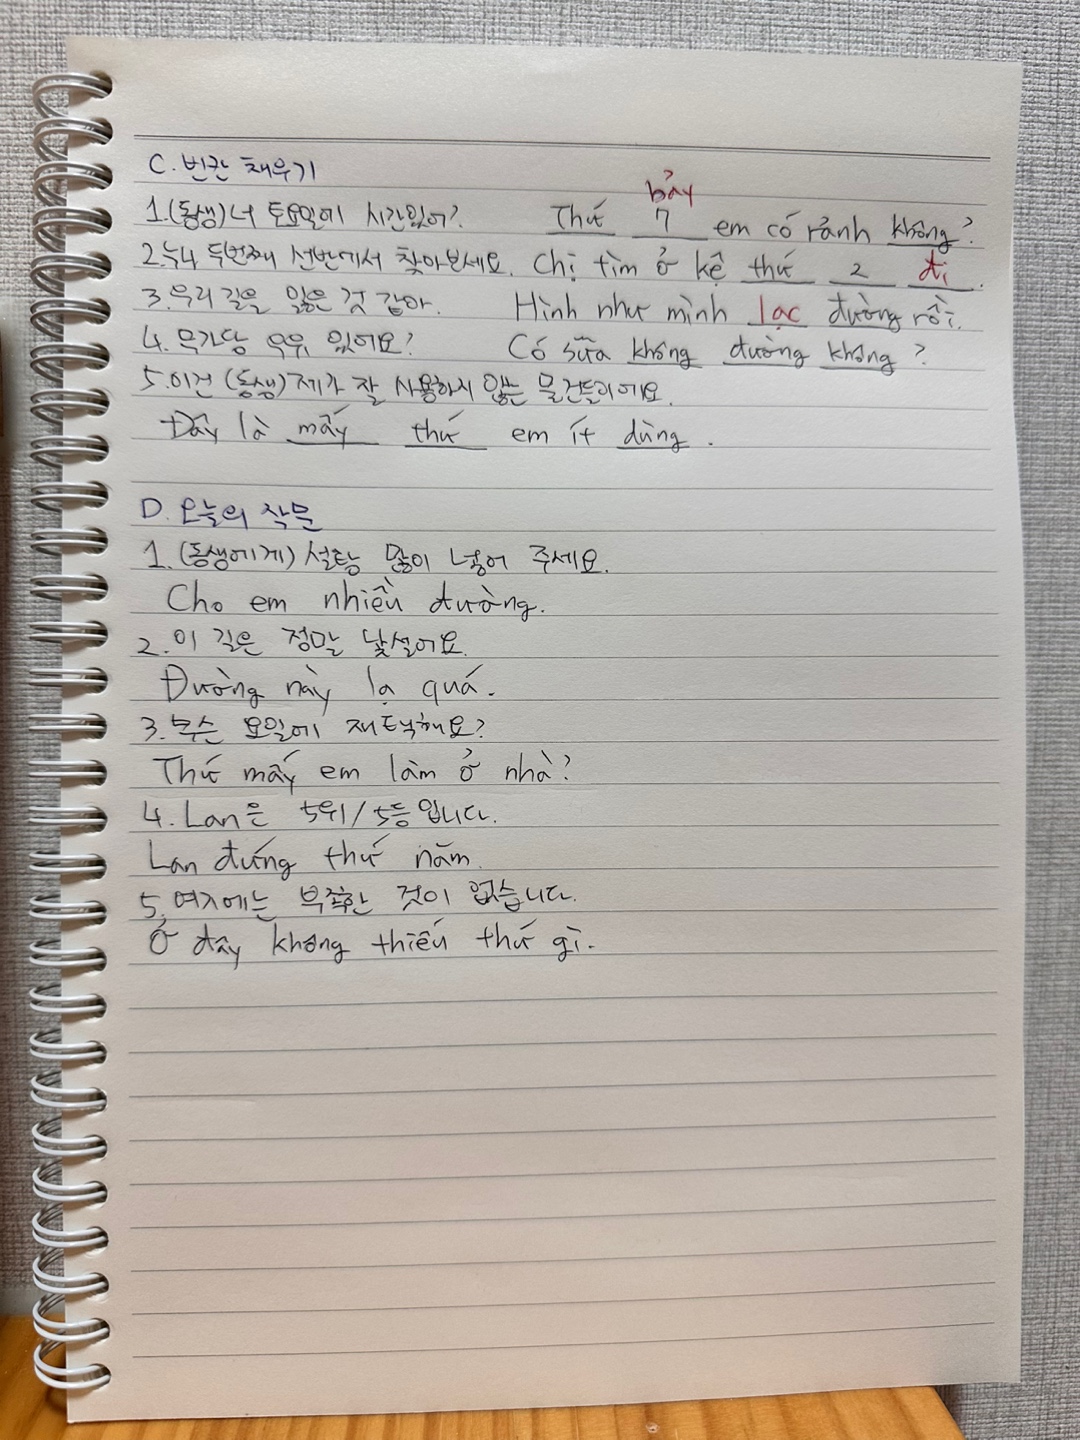 C. 빈칸 채우기
bảy
1. (동생) 너 토요일에 시간있어? Thứ 7 em có rảnh không?
2. 누나 두번째 선반에서 찾아보세요. Chị tìm ở kệ thứ 2 đi.
3. 우리 길을 잃은 것 같아. Hình như mình lạc đường rồi.
4. 무가당 우유 있어요? Có sữa không đường không?
5. 이건 (동생) 제가 잘 사용하지 않는 물건들이에요.
Đây là mấy thứ em ít dùng.
D. 오늘의 작문
1. (동생에게) 설탕 많이 넣어 주세요.
Cho em nhiều đường.
2. 이 길은 정말 낯설어요.
Đường này lạ quá.
3. 무슨 요일에 재택해요?
Thứ mấy em làm ở nhà?
4. Lan은 5위/5등입니다.
Lan đứng thứ năm.
5. 여기에는 부족한 것이 없습니다.
Ở đây không thiếu thứ gì.